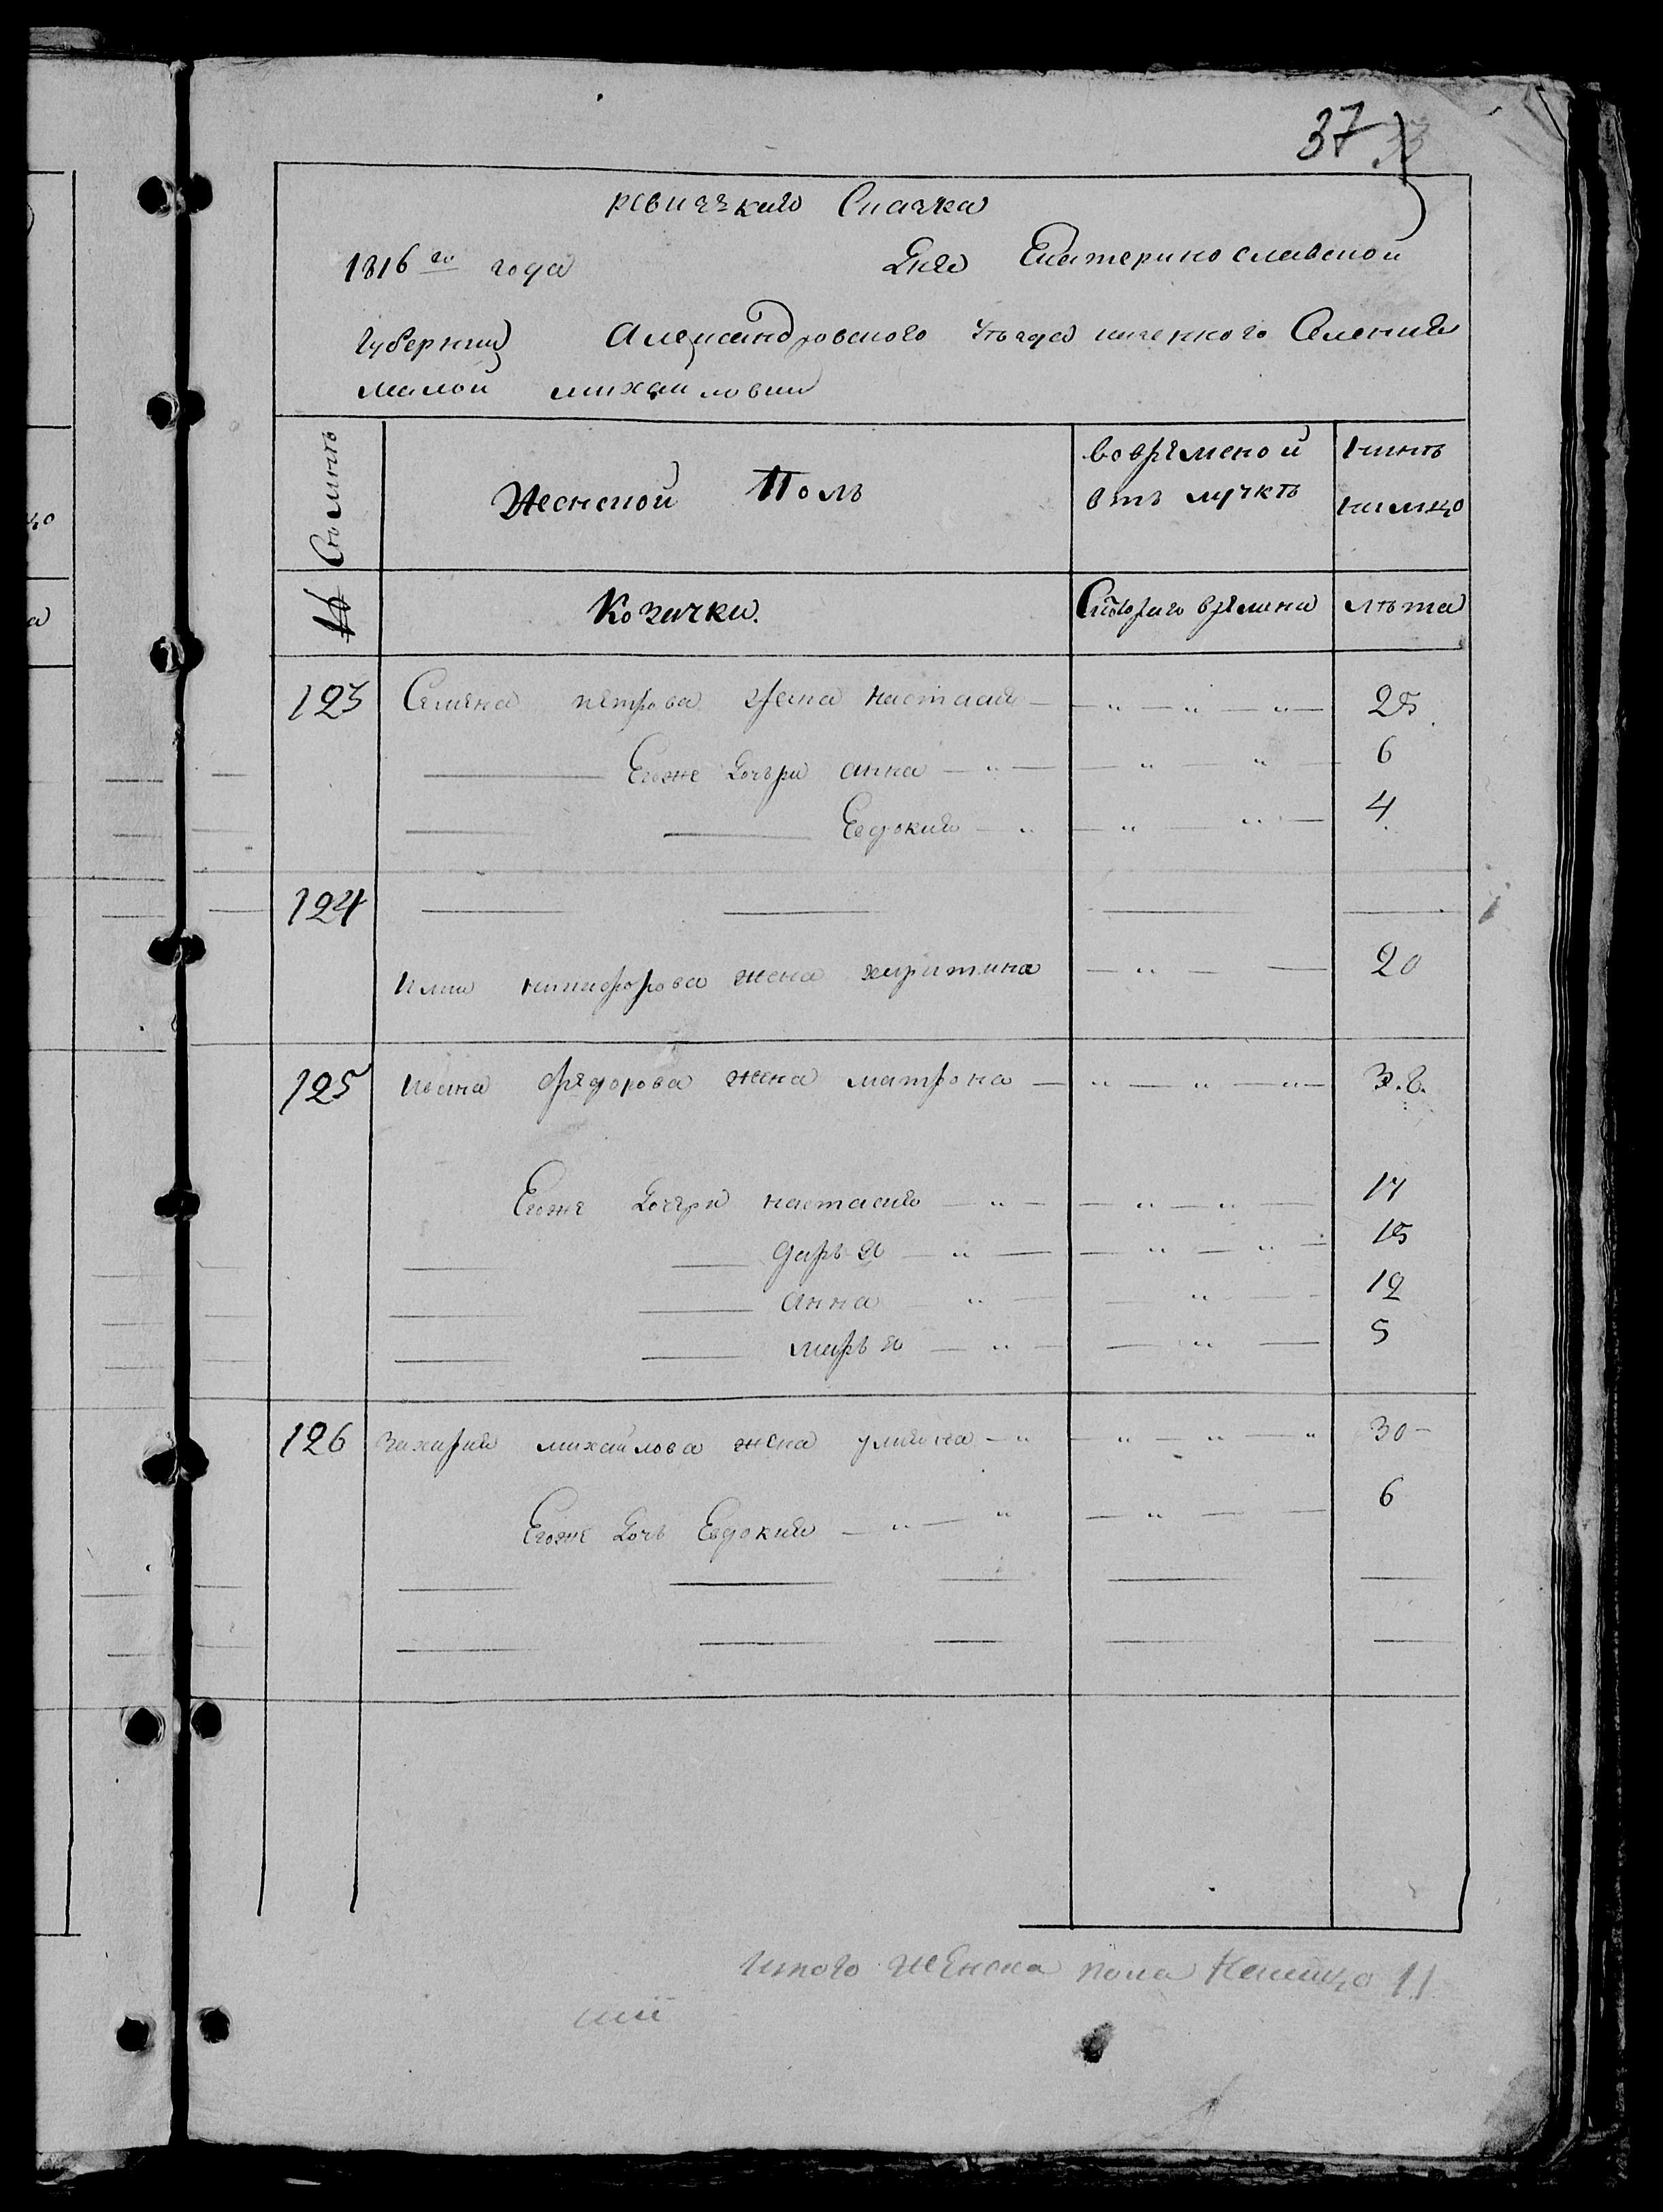 37
ревизскаго Сказка
1816 го года Дня Екатеринославской
Губернии Александровского уѣзда казенного Селения
малой михайловки
Семьи Женской Полъ во временой отлучкѣ Нинѣ налицо
№ Козачки. Скоторого времени лѣта
123 Семена петрова жена настасия — „ — „ — „ — 25
Егоже дочери анна — „ — „ — „ — 6
Евдокия — „ — „ — „ — 4
124
илии никифорова жена харитина — „ — — 20
125 ивана федорова жена матрона — „ — „ — „ — 38.
Егоже дочери настасия — „ — „ — „ — 17
дарья — „ — „ — „ — 15
анна — „ — „ — 12
марья — „ — „ — 5
126 захария михайлова жена улияна — „ — „ — „ — „ 30 —
Егоже дочь Евдокия — „ — „ — „ — — 6
итого женска пола Налицо 11